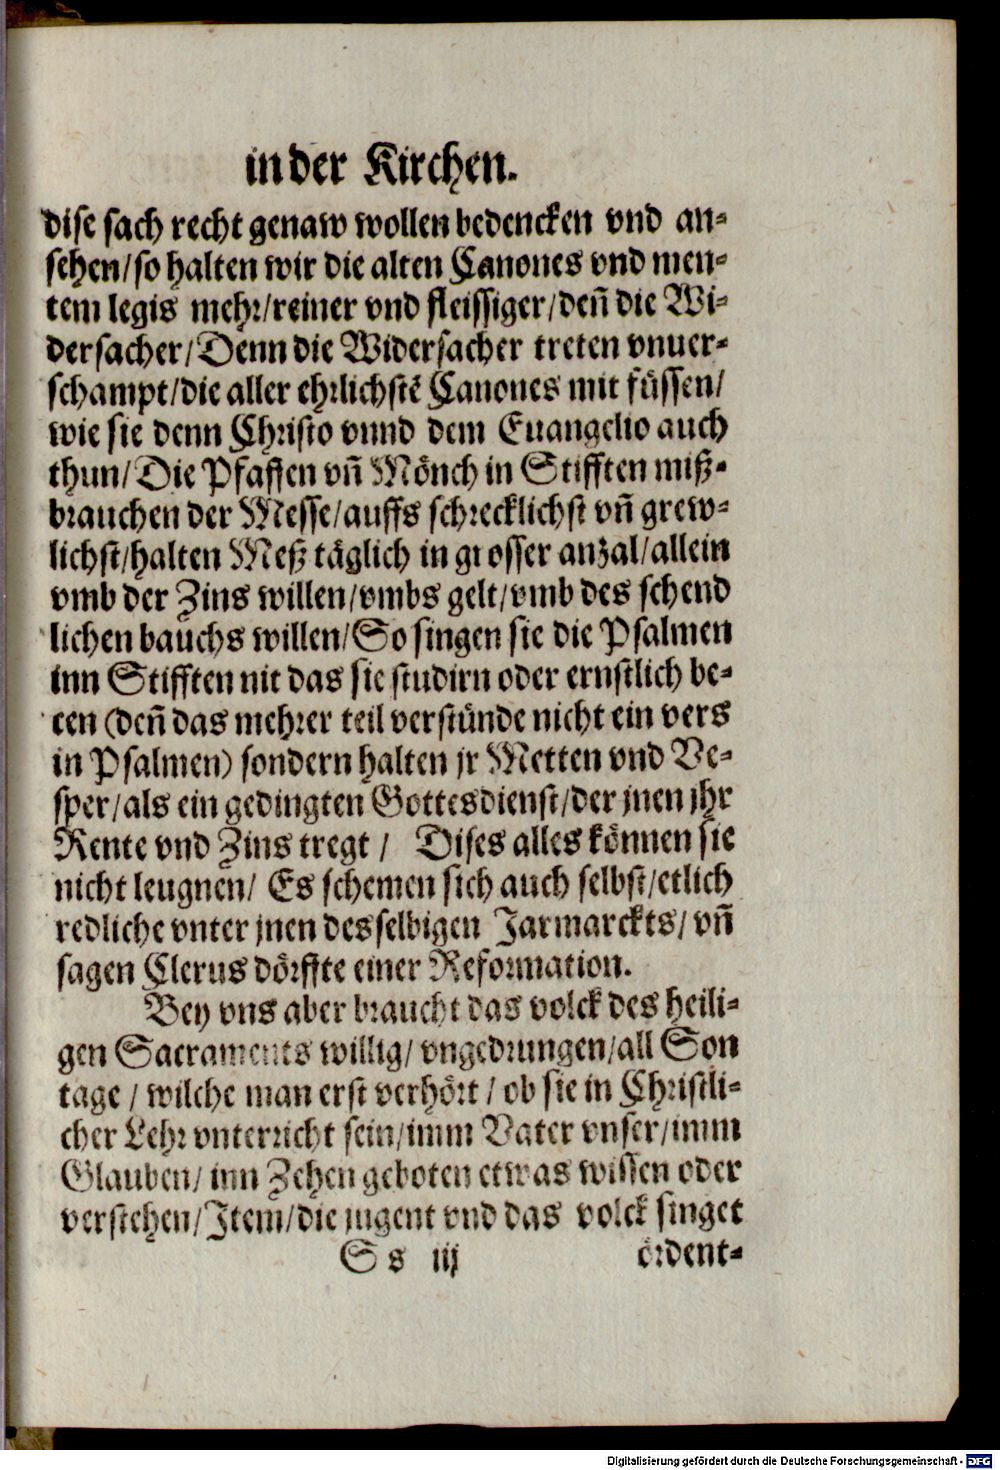 in der Kirchen.
dise sach recht genaw wollen bedencken vnd an-
sehen/so halten wir die alten Canones vnd men-
tem legis mehr/reiner vnd fleissiger/deñ die Wi-
dersacher/Denn die Widersacher treten vnuer-
schampt/die aller ehrlichstẽ Canones mit füssen/
wie sie denn Christo vnnd dem Euangelio auch
thun/Die Pfaffen vñ Mönch in Stifften miß-
brauchen der Messe/auffs schrecklichst vñ grew-
lichst/halten Meß täglich in grosser anzal/allein
vmb der Zins willen/vmbs gelt/vmb des schend
lichen bauchs willen/So singen sie die Psalmen
inn Stifften nit das sie studirn oder ernstlich be-
ten (deñ das mehrer teil verstünde nicht ein vers
in Psalmen) sondern halten jr Metten vnd Ve-
sper/als ein gedingten Gottesdienst/der jnen jhr
Rente vnd Zins tregt / Dises alles können sie
nicht leugnen/ Es schemen sich auch selbst/etlich
redliche vnter jnen desselbigen Jarmarckts/ vñ
sagen Clerus dörffte einer Reformation.
Bey vns aber braucht das volck des heili-
gen Sacraments willig/ vngedrungen/all Son
tage / wilche man erst verhört / ob sie in Christli-
cher Lehr vnterricht sein/imm Vater vnser/imm
Glauben/ inn Zehen geboten etwas wissen oder
verstehen/Item/die jugent vnd das volck singet
S s iij ördent-
Digitalisierung gefördert durch die Deutsche Forschungsgemeinschaft - DFG